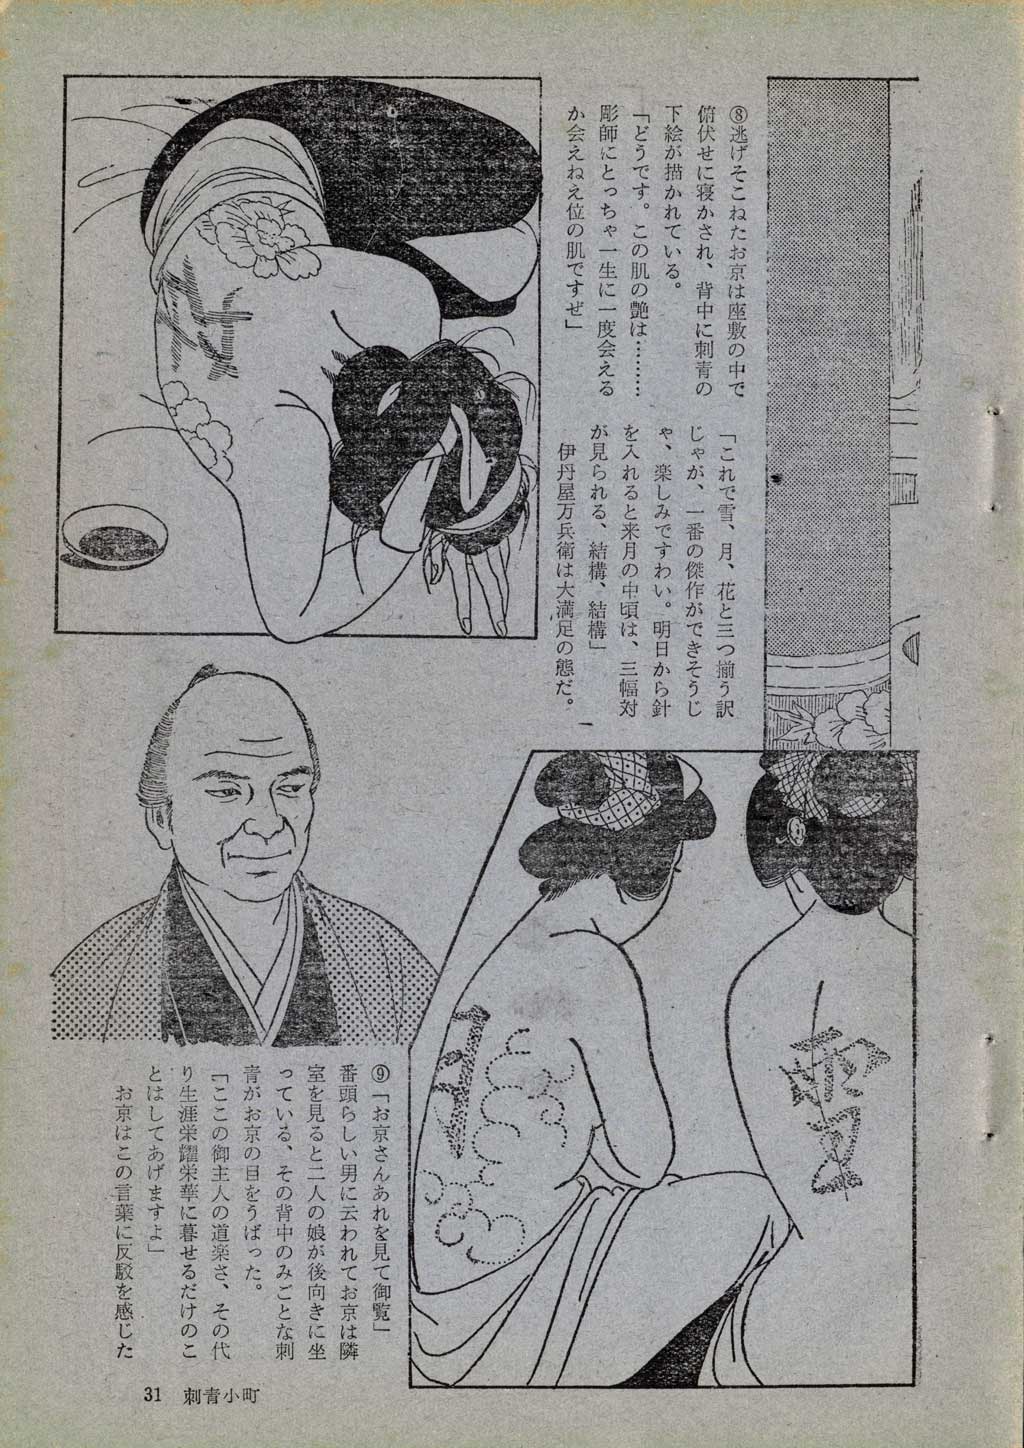 ⑧逃げそこねたお京は座敷の中で
俯伏せに寝かされ、背中に刺青の
下絵が描かれている。
「どうです。この肌の艶は………
彫師にとっちゃ一生に一度会える
か会えねえ位の肌ですぜ」
「これで雪、月、花と三つ揃う訳
じゃが、一番の傑作ができそうじ
ゃ、楽しみですわい。明日から針
を入れると来月の中頃は、三幅対
が見られる、結構、結構」
伊丹屋万兵衛は大満足の態だ。
花
月
雪
⑨「お京さんあれを見て御覧」
番頭らしい男に云われてお京は隣
室を見ると二人の娘が後向きに坐
っている、その背中のみごとな刺
青がお京の目をうばった。
「ここの御主人の道楽さ、その代
り生涯栄耀栄華に暮せるだけのこ
とはしてあげますよ」
お京はこの言葉に反駁を感じた
31 刺青小町